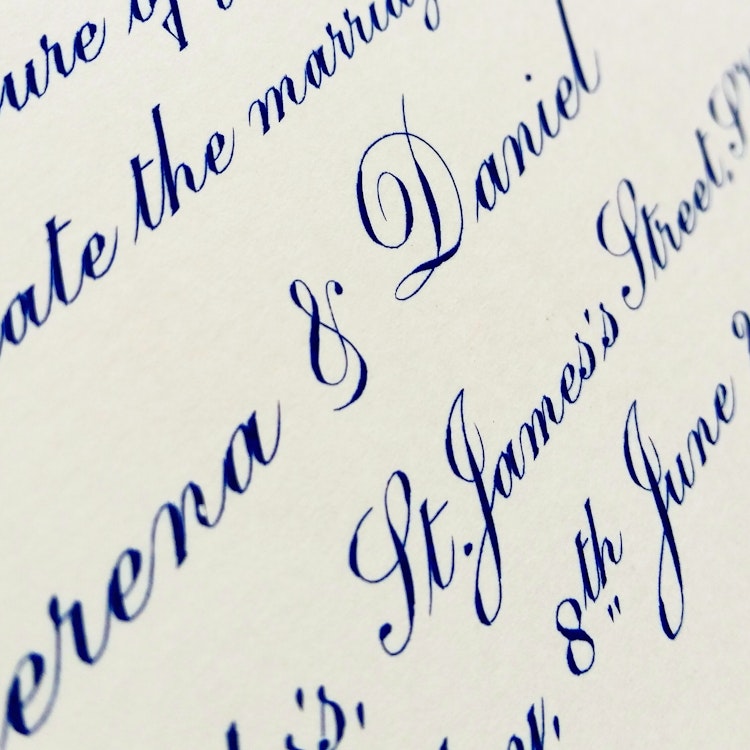 ure of
ate the marriag
erena & Daniel
's, St. James's Street,
8th June